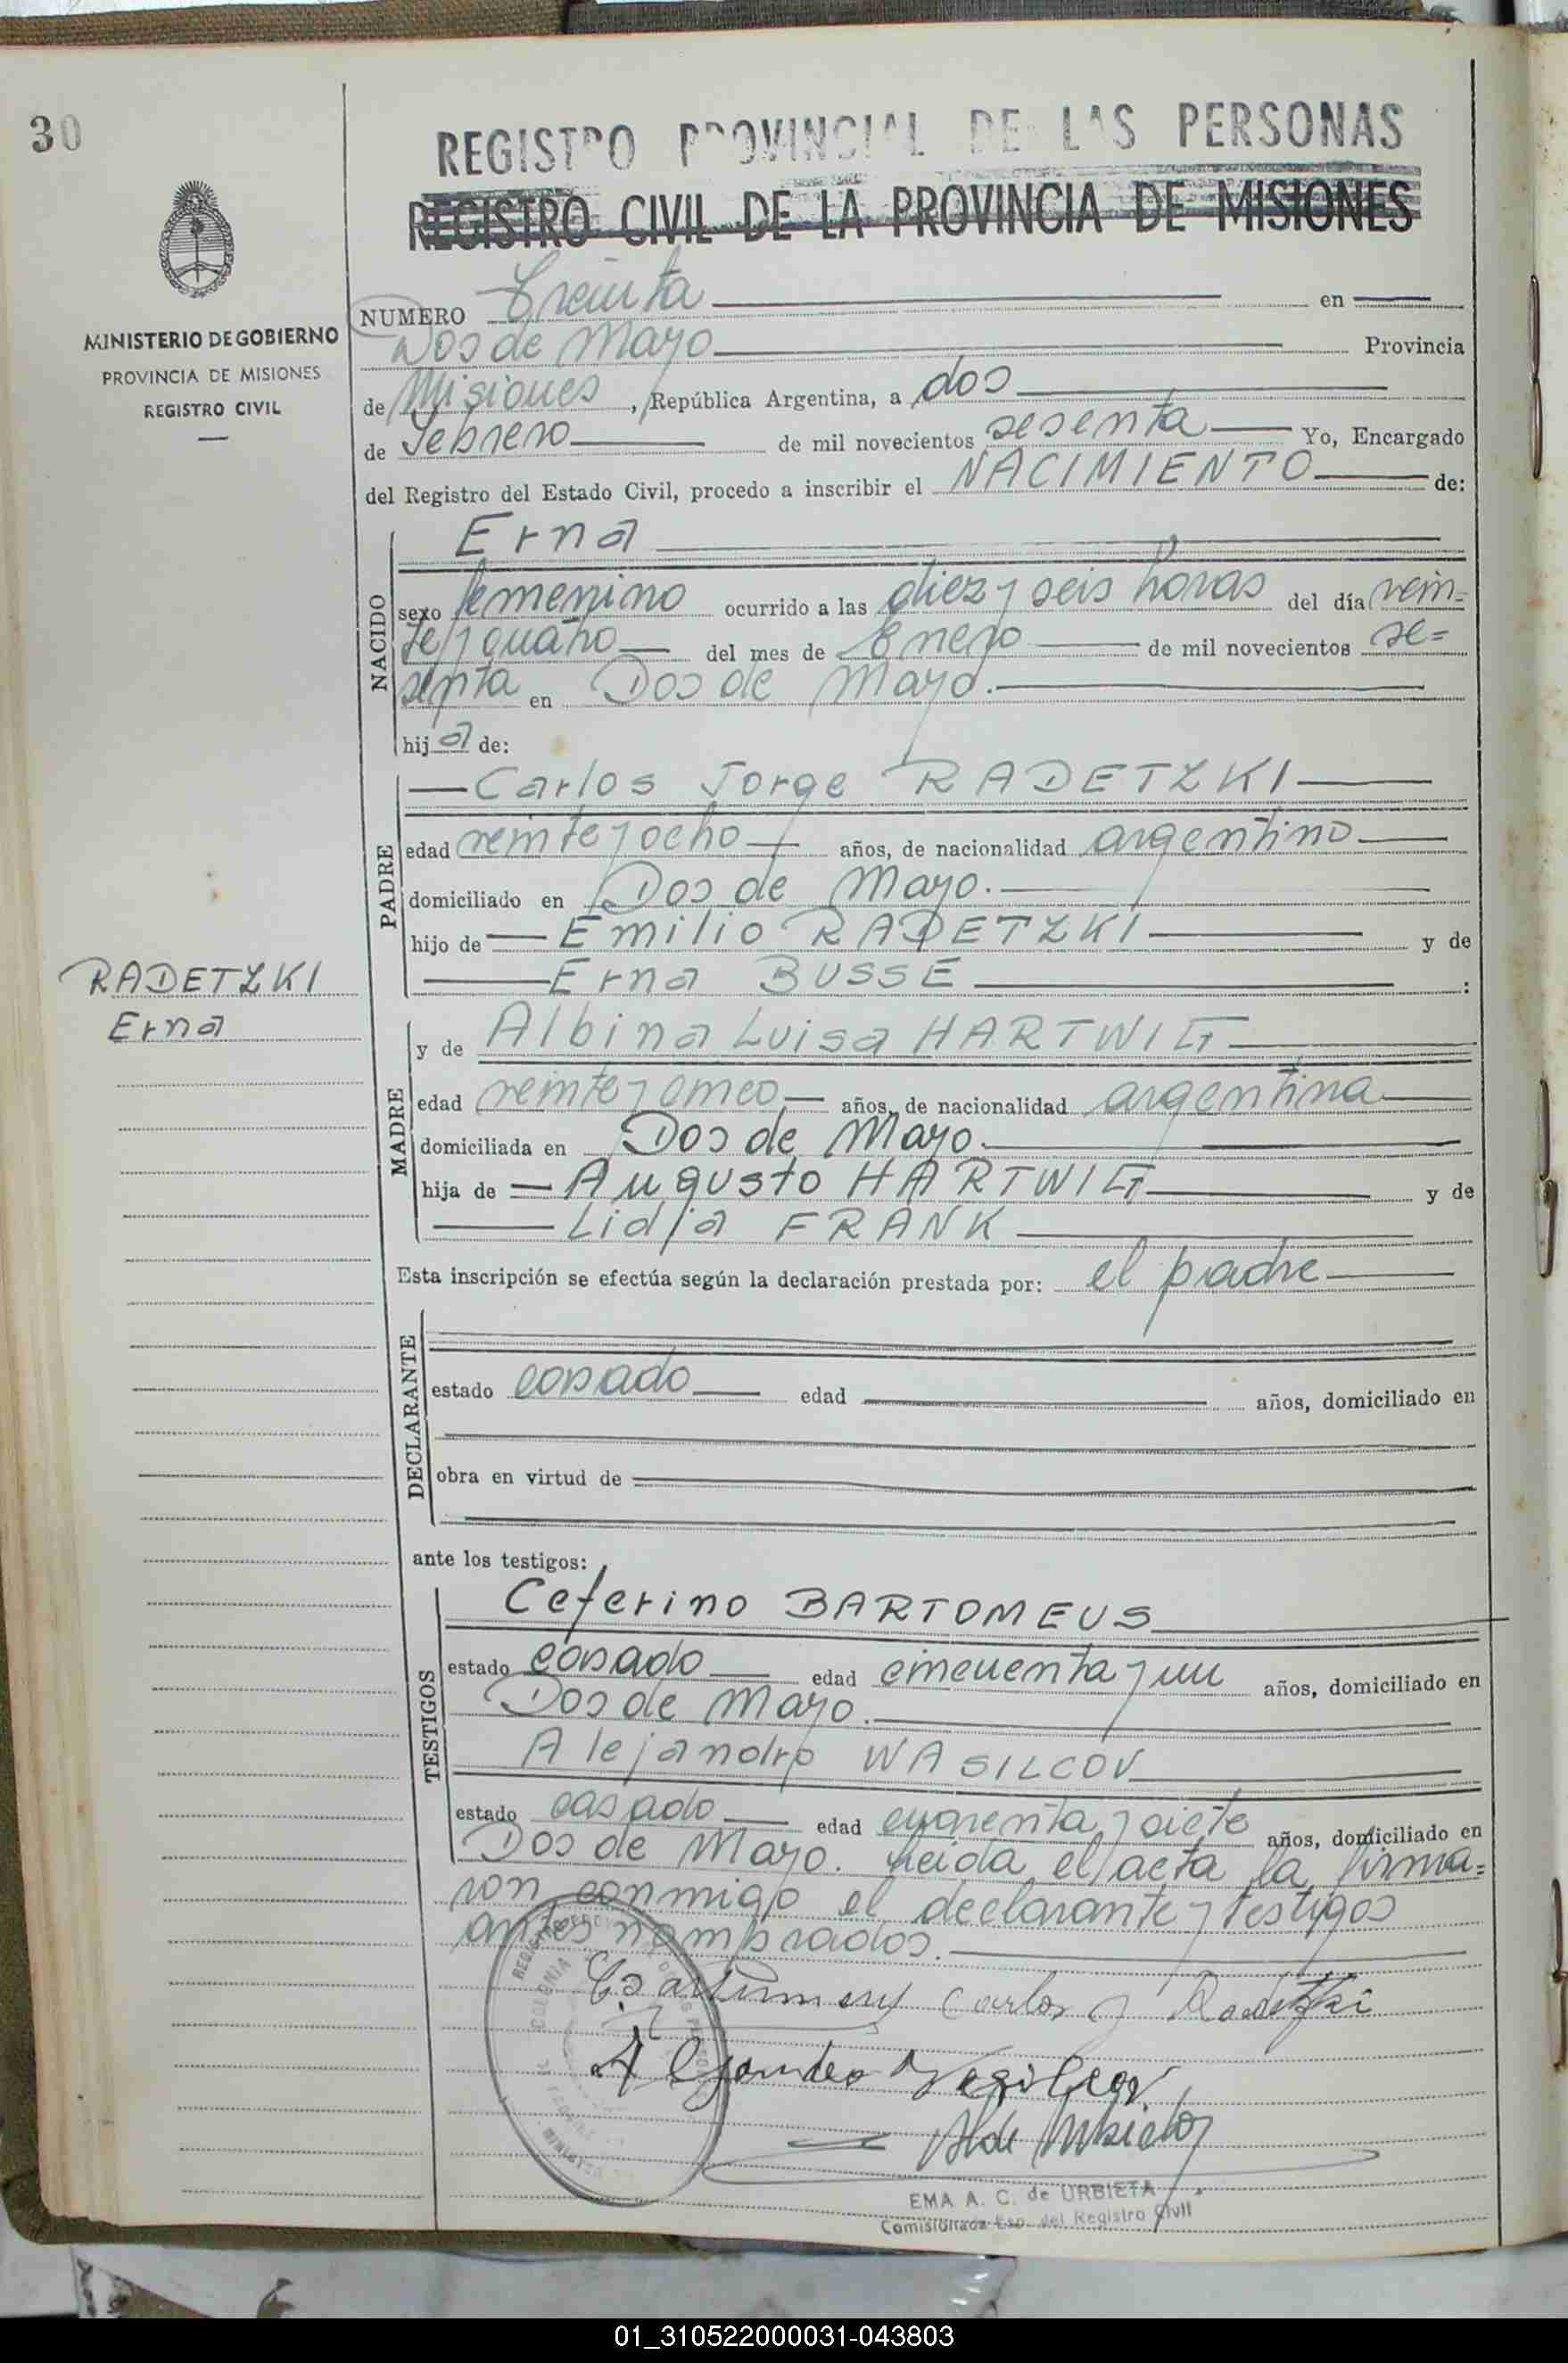 30
REGISTRO PROVINCIAL DE LAS PERSONAS
REGISTRO CIVIL DE LA PROVINCIA DE MISIONES
MINISTERIO DE GOBIERNO
PROVINCIA DE MISIONES
REGISTRO CIVIL
NUMERO Treinta en
Dos de Mayo Provincia
de Misiones, República Argentina, a dos
de Febrero de mil novecientos sesenta Yo, Encargado
del Registro del Estado Civil, procedo a inscribir el NACIMIENTO de:
NACIDO
Erna
sexo femenino ocurrido a las diez y seis horas del día vein=
te y cuatro del mes de Enero de mil novecientos se=
senta en Dos de Mayo.
hija de:
PADRE
Carlos Jorge RADETZKI
edad veinte y ocho años, de nacionalidad argentino
domiciliado en Dos de Mayo.
hijo de Emilio RADETZKI y de
Erna BUSSE :
RADETZKI
Erna
MADRE
y de Albina Luisa HARTWIG
edad veinte y cinco años, de nacionalidad argentina
domiciliada en Dos de Mayo.
hija de Augusto HARTWIG y de
Lidja FRANK
Esta inscripción se efectúa según la declaración prestada por: el padre
DECLARANTE
estado casado edad años, domiciliado en
obra en virtud de
ante los testigos:
TESTIGOS
Ceferino BARTOMEUS
estado casado edad cincuenta y un años, domiciliado en
Dos de Mayo.
Alejandro WASILCOV
estado casado edad cuarenta y siete años, domiciliado en
Dos de Mayo. Leida el acta la firma=
ron conmigo el declarante y testigos
antes nombrados.
Carlos J Radetzki
Alejandro
EMA A. C. de URBIETA
Comisionada Esp. del Registro Civil
01_310522000031-043803